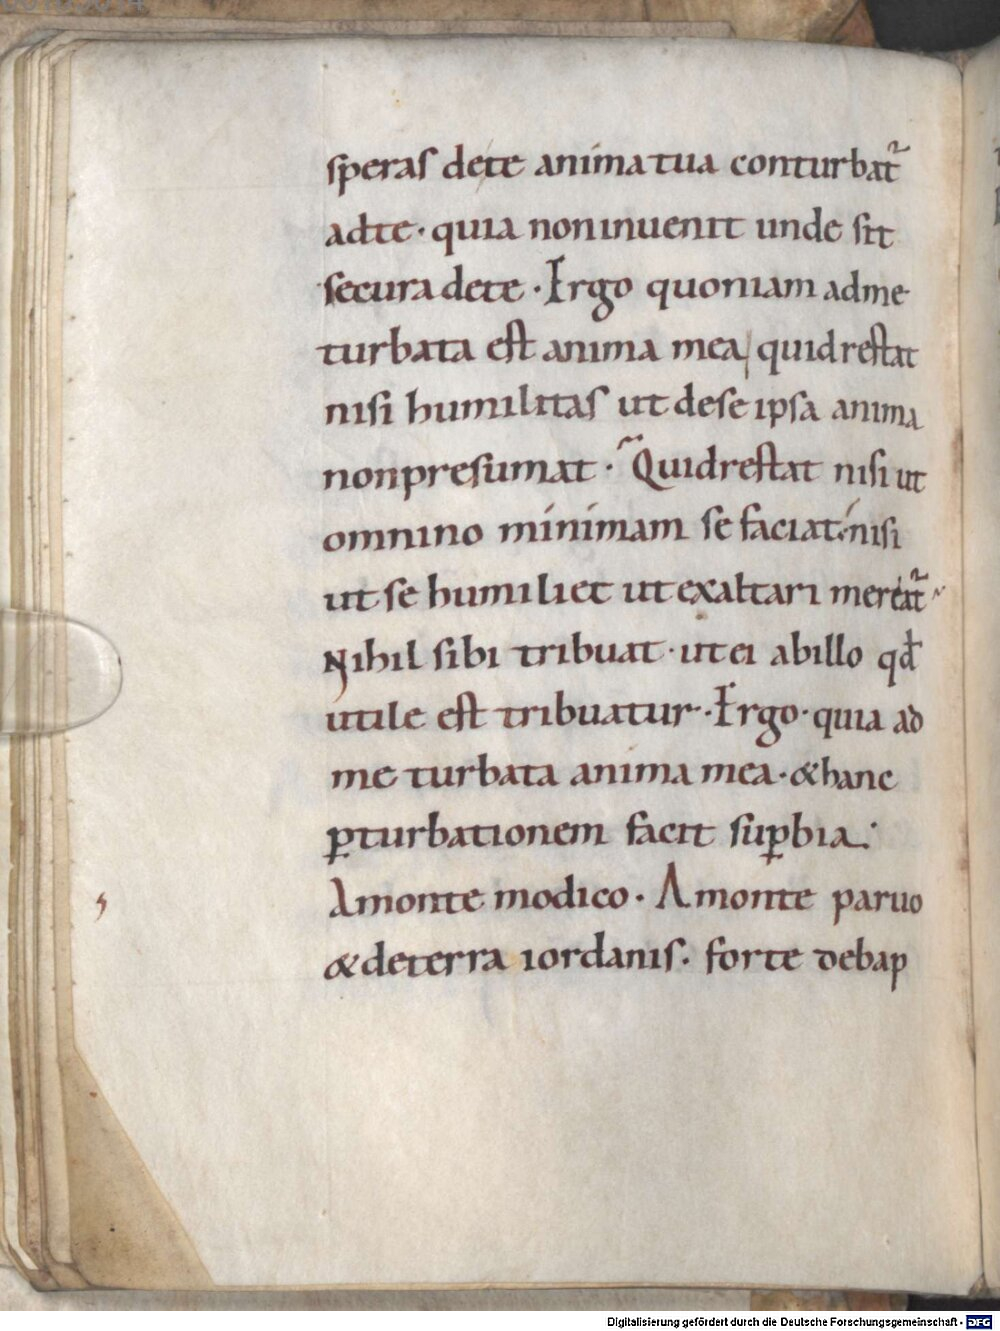 speras dete anima tua conturbat᷑
adte· quia noninuenit unde sit
secura dete · Ergo quoniam adme
turbata est anima mea quid restat
nisi humilitas ut dese ipsa anima
nonpresumat · Quidrestat nisi ut
omnino minimam se faciat· nisi
ut se humiliet ut exaltari mereat᷑
Nihil sibi tribuat· ut ei abillo qđ
utile est tribuatur· Ergo· quia ad
me turbata anima mea· &hanc
ꝑturbationem facit suꝑbia.
Amonte modico· Amonte paruo
&deterra iordanis· forte debap
Digitalisierung gefördert durch die Deutsche Forschungsgemeinschaft - DFG